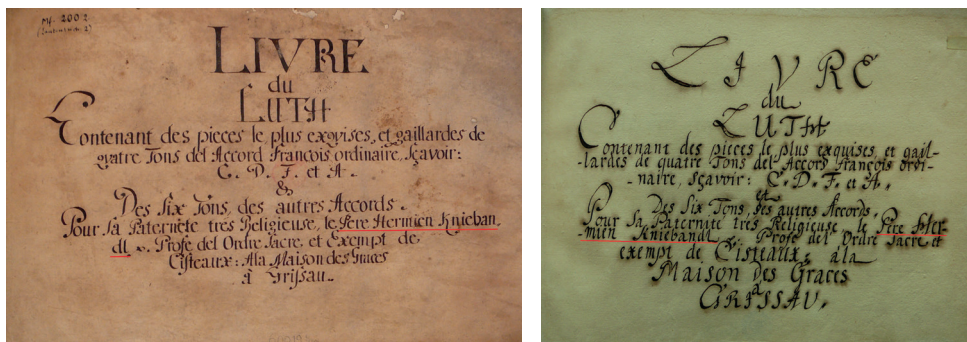 Mf. 2002
LIVRE
du
LUTH
Contenant des pieces le plus exqvises, et gaillardes de
qvatre Tons del Accord Francois ordinaire, Sçavoir:
C. D. F. et A.
&
Des Six Tons, des autres Accords.
Pour Sa Paternete tres Religieuse, le Pere Hermien Knieban
dl Profe del Ordre Sacre, et Exempt de
Cisteaux: Ala Maison des Graces
à Grissau.
LIVRE
du
LUTH
Contenant des pieces le plus exquises, et gail-
-lardes de quatre Tons del Accord François ordi-
-naire, sçavoir: C. D. F. et A.
et
Des Six Tons, des autres Accords.
Pour Sa Paternité tres Religieuse, le Pere Her-
mien Kniebandl Profe del Ordre Sacre et
exempt de Cisteaux: ala
Maison des Graces
a
GRISSAU.